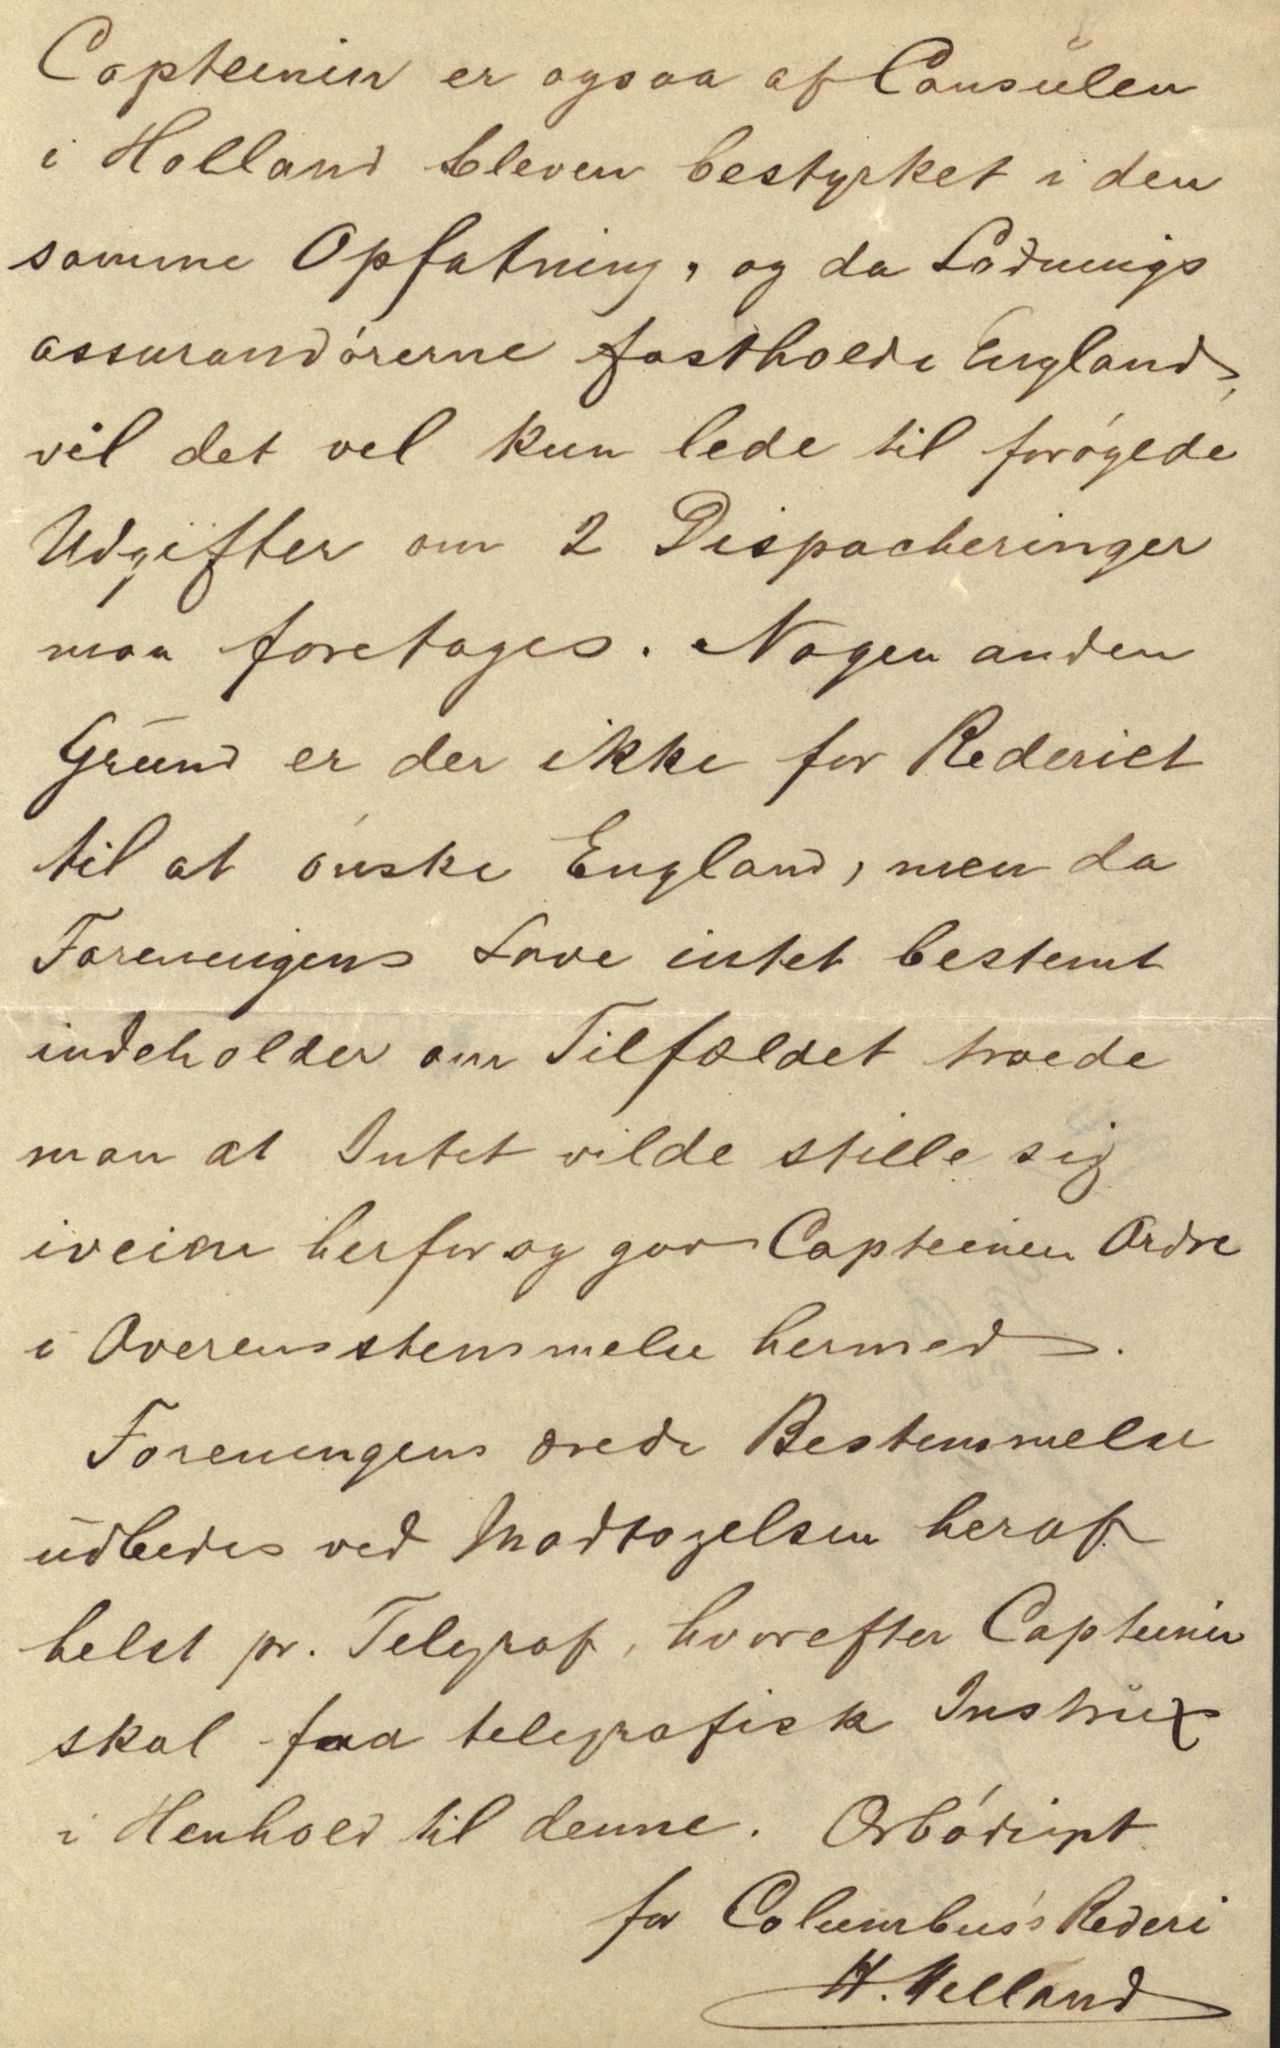 Capteinen er ogsaa af Consulen
i Holland bleven bestyrket i den
samme Opfatning, og da Ladnings
assurandørerne fastholde England,
vil det vel kun lede til forøgede
Udgifter om 2 Dispacheringer
maa foretages. Nogen anden
Grund er der ikke for Rederiet
til at ønske England, men da
Foreningens Love intet bestemt
indeholder om Tilfældet troede
man at Intet vilde stille sig
iveien herfor og gav Capteinen Ordre
i Overensstemmelse hermed.
Foreningens ærede Bestemmelse
udbedes ved Modtagelsen heraf
helst pr. Telegraf, hvorefter Capteinen
skal faa telegrafisk Instrux
i Henhold til denne. Ærbødigst
for Columbus's Rederi
H. Helland